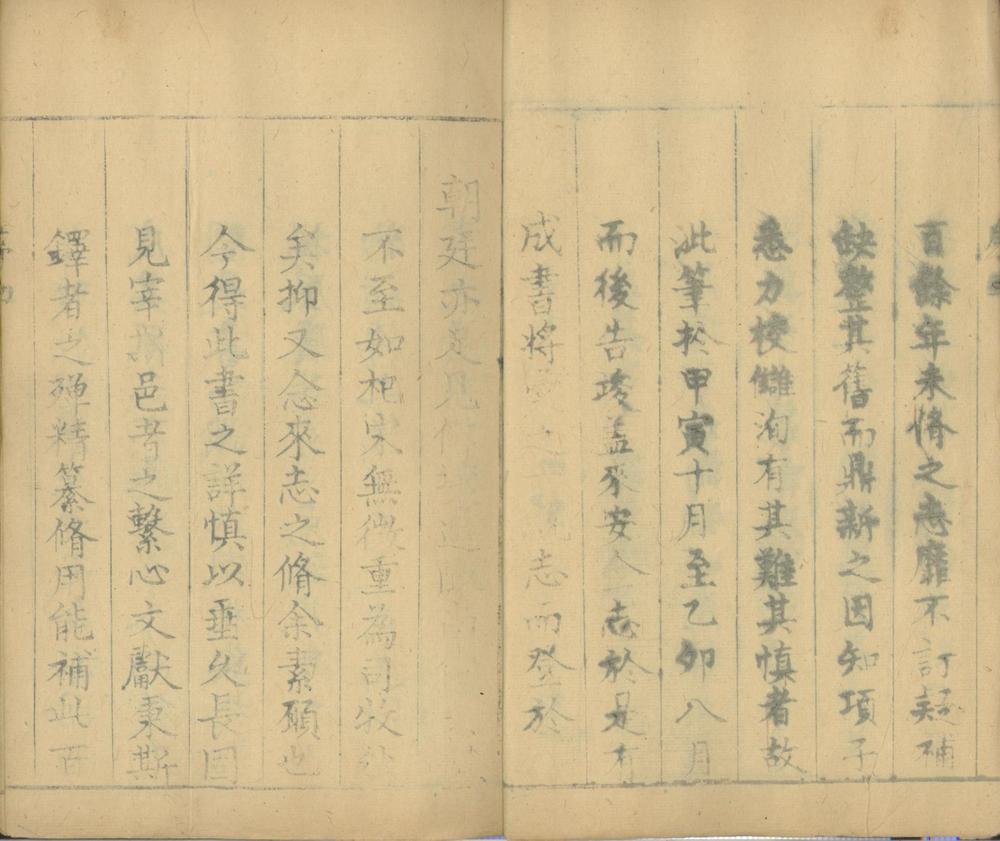 百餘年未脩之志靡不訂疑補
缺整其舊而鼎新之因知項子
悉力校讎洵有其難其慎者故
此筆於甲寅十月至乙卯八月
而後告竣蓋來安全志於是有
成書將志而登於
朝廷亦足見
不至如杞宋無徵重為司牧
矣抑又念來志之脩余素願也
今得此書之詳慎以垂久長固
見宰邑者之繫心文獻秉斯
鐸者之殫精纂脩用能補此百